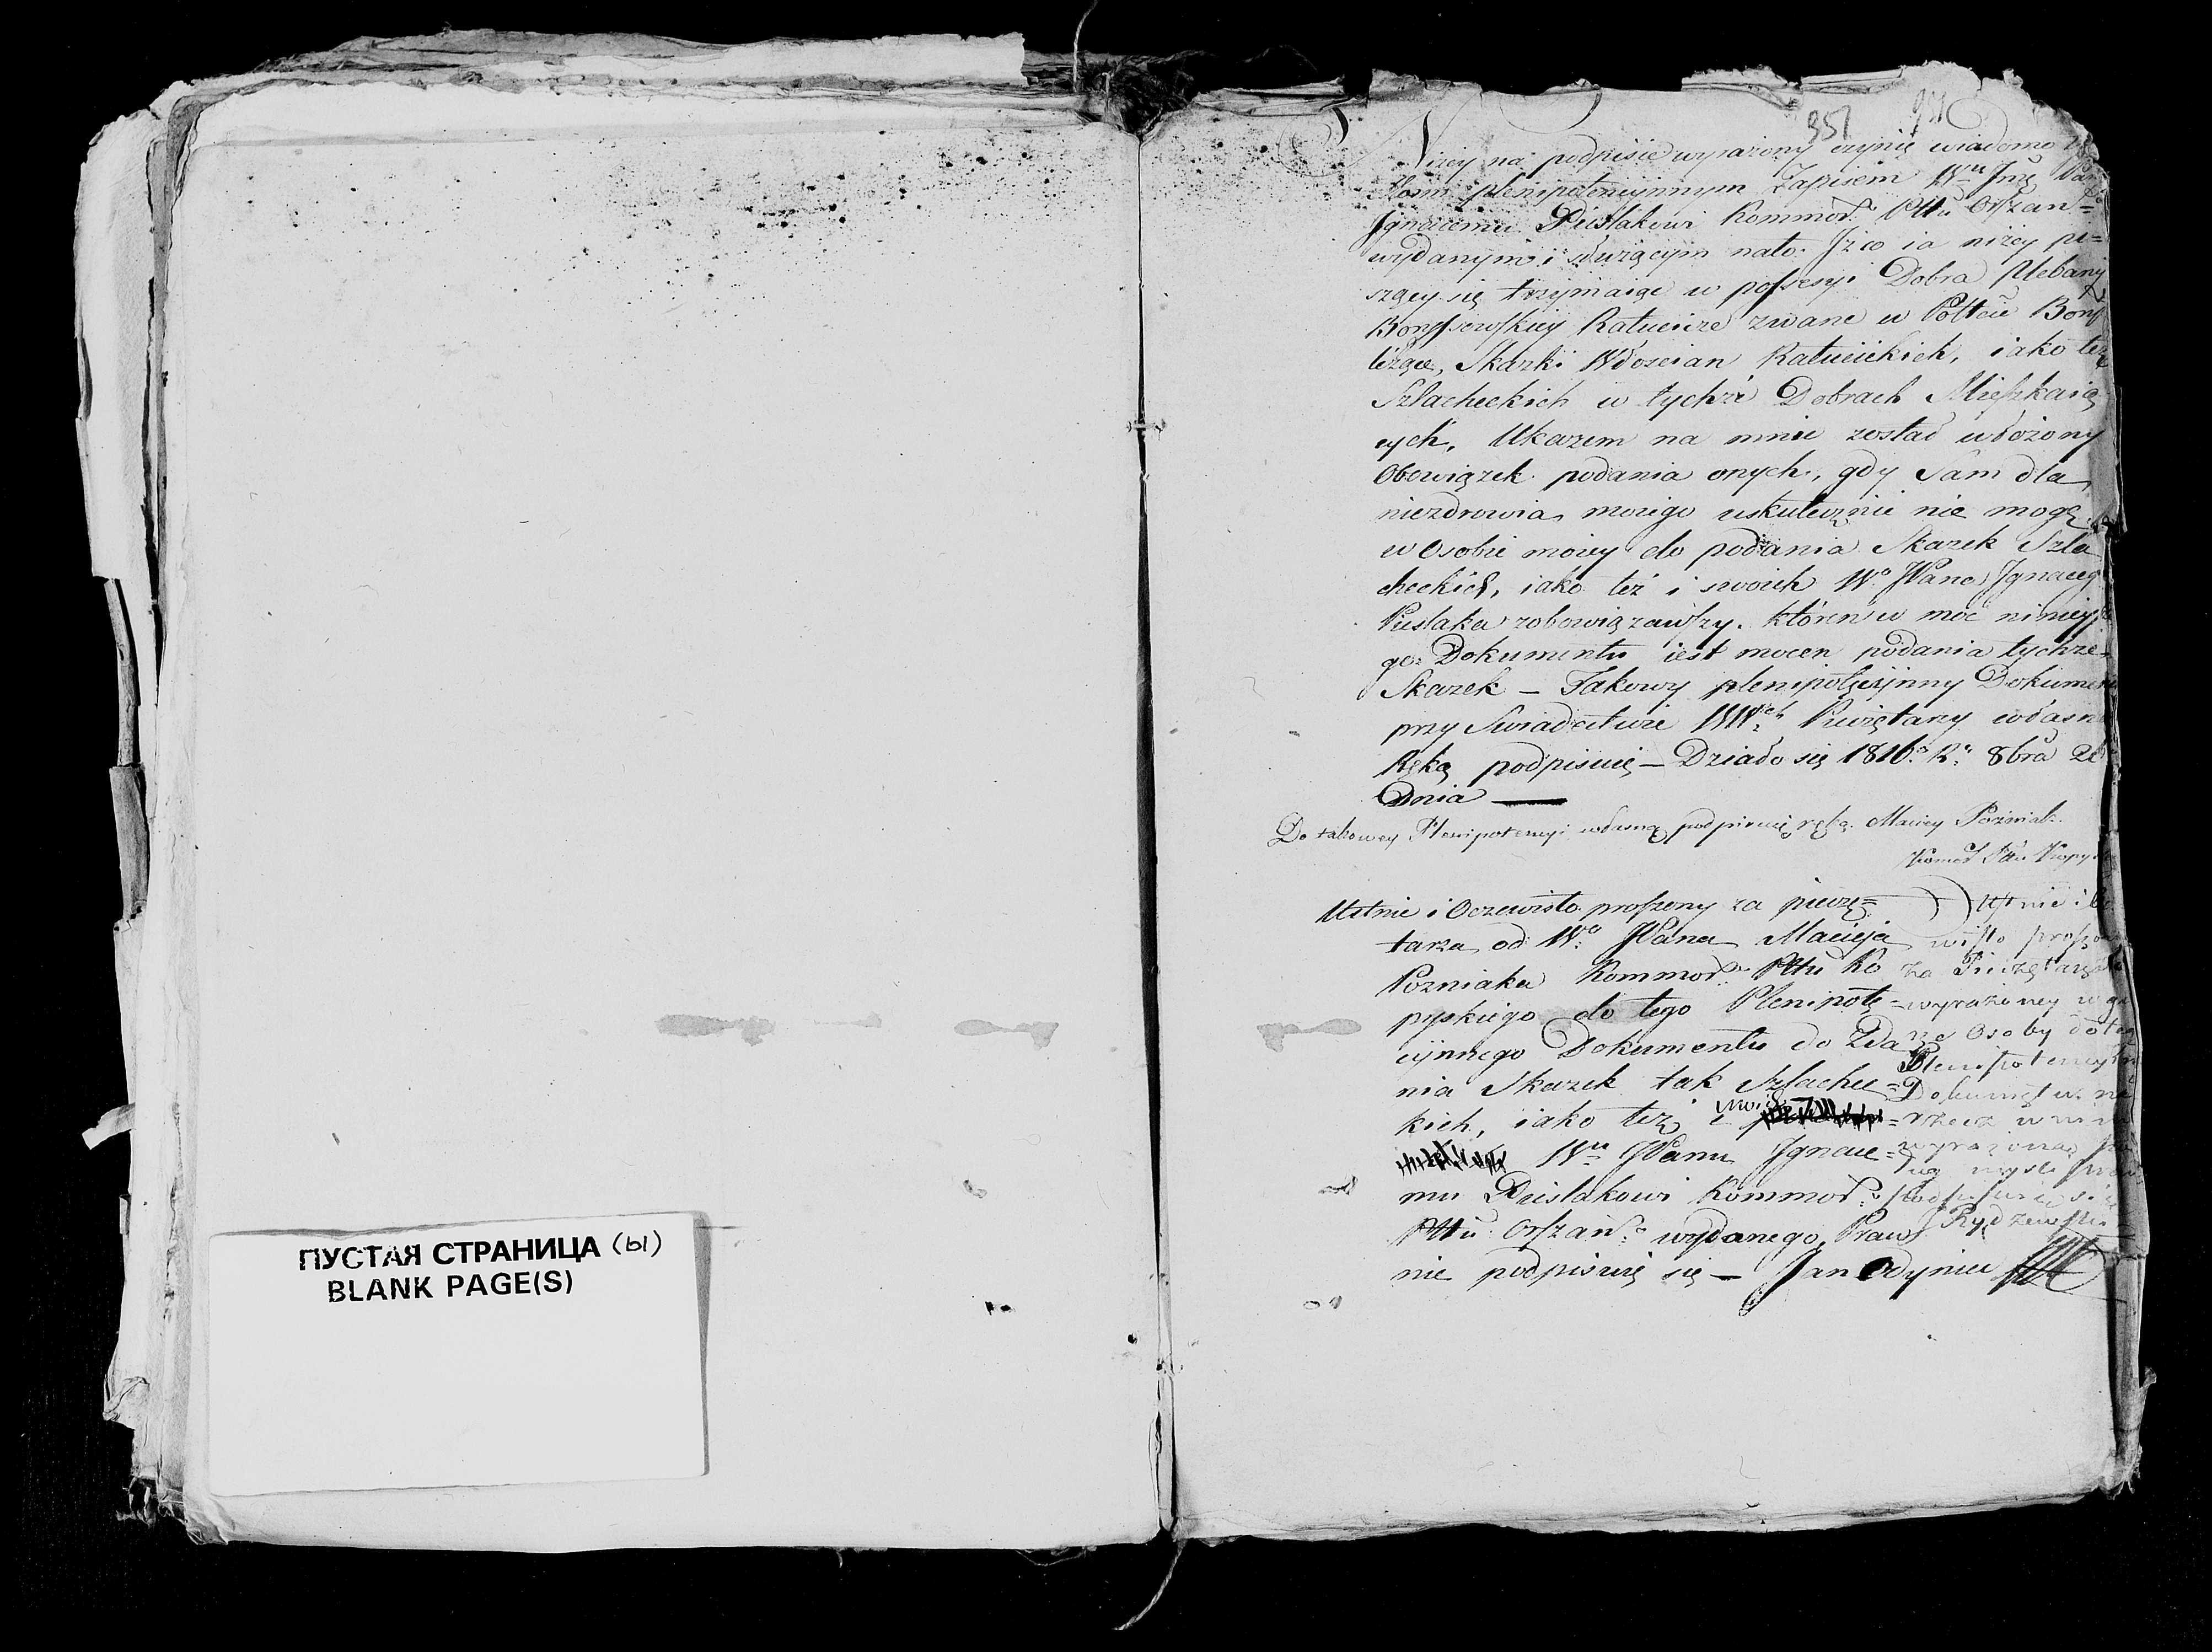 ПУСТАЯ СТРАНИЦА (ы)
BLANK PAGE(S)
351
Niżey na podpisie wyrażony czynię wiadomo
plenipotencyinnym Zapisem Wu Jmę
Ignacemu Pieslakowi Kommor. Pttu Orszan=
wydanym i służącym na to. Iż co ia niżey pi=
szący się trzymaiąc w possesyi Dobra Plebanij
Katucicze zwane w Pottcie
leżące, Skazki Włoscian Katucickich, iako też
Szlacheckich w tychże Dobrach Mieszkaią
cych, Ukazem na mnie został włożony
Obowiązek podania onych, gdy Sam dla
niezdrowia moiego uskutecznić nie mogę,
w Osobie moiey do podania Skazek Szla
checkich, iako też i swoich Wo JPana Ignaceg
Pieslaka zobowiązawszy. któren w moc niniey
go Dokumentu iest mocen podania tychże
Skazek — Takowy plenipotęcyinny Dokumen
przy Swiadectwie WWch Pieczętarzy własn
Ręką podpisuię — Działo się 1816o Ru 8bra
Dnia —
Do takowey Plenipotencyi własną podpisuię ręką. Maciey Pozniak.
Komor Pttu
Ustnie i Oczewisto proszony za pieczę=
tarza od Wo JPana Macieja
Pozniaka Kommor Pttu Ko
pyskiego do tego Plenipotę=
cyinnego Dokumentu do Zda
nia Skazek tak Szlachec=
kich, iako też i
Wu JPanu Ignace=
mu Pieslakowi Kommor.
Pttu Orszań. wydanego Praw
nie podpisuię się — Jan Odyniec
Ustnie i
wisto proszo
za Pieczętarza
wyrażoney w gó
rze Osoby do teg
Plenipotencyi
Dokumęt w
rzecz w
wyrażoną
ług mysli praw
podpisuię się
Rydzewski